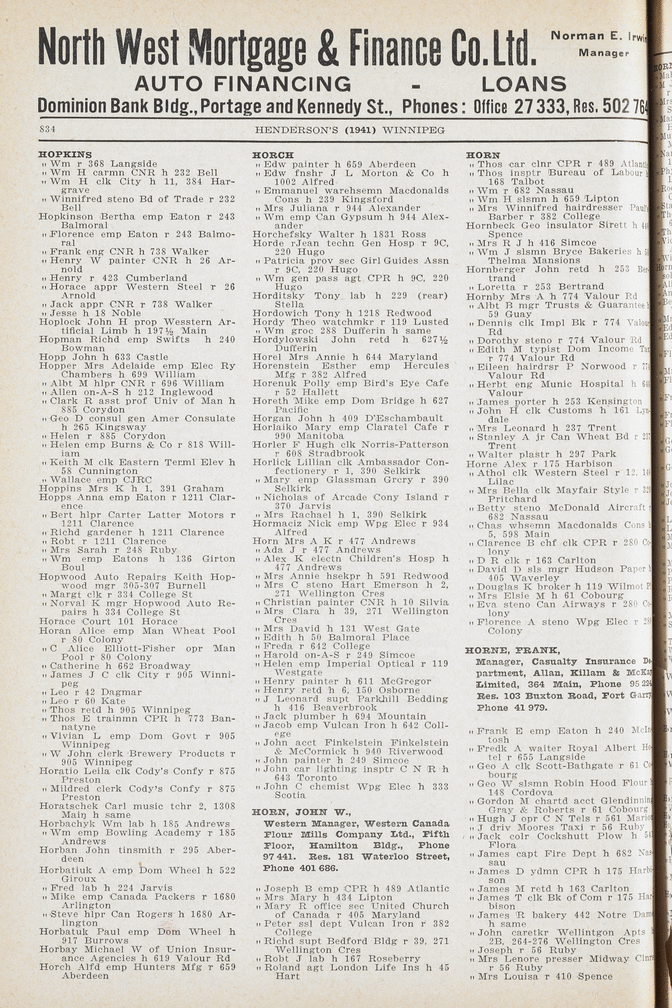 North West Mortgage & Finance Co. Ltd.
Norman E. Irwin
Manager
AUTO FINANCING - LOANS
Dominion Bank Bldg., Portage and Kennedy St., Phones: Office 27 333, Res. 502 764
834
HENDERSON'S (1941) WINNIPEG
HOPKINS
" Wm r 368 Langside
" Wm H carmn CNR h 232 Bell
" Wm H clk City h 11, 384 Har-
grave
" Winnifred steno Bd of Trade r 232
Bell
Hopkinson Bertha emp Eaton r 243
Balmoral
" Florence emp Eaton r 243 Balmo-
ral
" Frank eng CNR h 738 Walker
" Henry W painter CNR h 26 Ar-
nold
" Henry r 423 Cumberland
" Horace appr Western Steel r 26
Arnold
" Jack appr CNR r 738 Walker
" Jesse h 18 Noble
Hoplock John H prop Wesstern Ar-
tificial Limb h 197½ Main
Hopman Richd emp Swifts h 240
Bowman
Hopp John h 633 Castle
Hopper Mrs Adelaide emp Elec Ry
Chambers h 699 William
" Albt M hlpr CNR r 696 William
" Allen on-A-S h 212 Inglewood
" Clark R asst prof Univ of Man h
885 Corydon
" Geo D consul gen Amer Consulate
h 265 Kingsway
" Helen r 885 Corydon
" Helen emp Burns & Co r 818 Will-
iam
" Keith M clk Eastern Terml Elev h
58 Cunnington
" Wallace emp CJRC
Hoppins Mrs K h 1, 391 Graham
Hopps Anna emp Eaton r 1211 Clar-
ence
" Bert hlpr Carter Latter Motors r
1211 Clarence
" Richd gardener h 1211 Clarence
" Robt r 1211 Clarence
" Mrs Sarah r 248 Ruby
" Wm emp Eatons h 136 Girton
Boul
Hopwood Auto Repairs Keith Hop-
wood mgr 305-307 Burnell
" Margt clk r 334 College St
" Norval K mgr Hopwood Auto Re-
pairs h 334 College St
Horace Court 101 Horace
Horan Alice emp Man Wheat Pool
r 80 Colony
" C Alice Elliott-Fisher opr Man
Pool r 80 Colony
" Catherine h 662 Broadway
" James J C clk City r 905 Winni-
peg
" Leo r 42 Dagmar
" Leo r 60 Kate
" Thos retd h 905 Winnipeg
" Thos E trainmn CPR h 773 Ban-
natyne
" Vivian L emp Dom Govt r 905
Winnipeg
" W John clerk Brewery Products r
905 Winnipeg
Horatio Leila clk Cody's Confy r 875
Preston
" Mildred clerk Cody's Confy r 875
Preston
Horatschek Carl music tchr 2, 1308
Main h same
Horbachyk Wm lab h 185 Andrews
" Wm emp Bowling Academy r 185
Andrews
Horban John tinsmith r 295 Aber-
deen
Horbatiuk A emp Dom Wheel h 522
Giroux
" Fred lab h 224 Jarvis
" Mike emp Canada Packers r 1680
Arlington
" Steve hlpr Can Rogers h 1680 Ar-
lington
Horbatuk Paul emp Dom Wheel h
917 Burrows
Horbay Michael W of Union Insur-
ance Agencies h 619 Valour Rd
Horch Alfd emp Hunters Mfg r 659
Aberdeen
HORCH
" Edw painter h 659 Aberdeen
" Edw fnshr J L Morton & Co h
1002 Alfred
" Emmanuel warehsemn Macdonalds
Cons h 239 Kingsford
" Mrs Juliana r 944 Alexander
" Wm emp Can Gypsum h 944 Alex-
ander
Horchefsky Walter h 1831 Ross
Horde rJean techn Gen Hosp r 9C,
220 Hugo
" Patricia prov sec Girl Guides Assn
r 9C, 220 Hugo
" Wm gen pass agt CPR h 9C, 220
Hugo
Horditsky Tony lab h 229 (rear)
Stella
Hordowich Tony h 1218 Redwood
Hordy Theo watchmkr r 119 Lusted
" Wm groc 288 Dufferin h same
Hordylowski John retd h 627½
Dufferin
Horel Mrs Annie h 644 Maryland
Horenstein Esther emp Hercules
Mfg r 382 Alfred
Horenuk Polly emp Bird's Eye Cafe
r 52 Hallett
Horeth Mike emp Dom Bridge h 627
Pacific
Horgan John h 409 D'Eschambault
Horlaiko Mary emp Claratel Cafe r
990 Manitoba
Horler F Hugh clk Norris-Patterson
r 608 Stradbrook
Horlick Lillian clk Ambassador Con-
fectionery r 1, 390 Selkirk
" Mary emp Glassman Grcry r 390
Selkirk
" Nicholas of Arcade Cony Island r
370 Jarvis
" Mrs Rachael h 1, 390 Selkirk
Hormaciz Nick emp Wpg Elec r 934
Alfred
Horn Mrs A K r 477 Andrews
" Ada J r 477 Andrews
" Alex K electn Children's Hosp h
477 Andrews
" Mrs Annie hsekpr h 591 Redwood
" Mrs C steno Hart Emerson h 2,
271 Wellington Cres
" Christian painter CNR h 10 Silvia
" Mrs Clara h 39, 271 Wellington
Cres
" Mrs David h 131 West Gate
" Edith h 50 Balmoral Place
" Freda r 642 College
" Harold on-A-S r 249 Simcoe
" Helen emp Imperial Optical r 119
Westgate
" Henry painter h 611 McGregor
" Henry retd h 6, 150 Osborne
" J Leonard supt Parkhill Bedding
h 416 Beaverbrook
" Jack plumber h 694 Mountain
" Jacob emp Vulcan Iron h 642 Coll-
ege
" John acct Finkelstein Finkelstein
& McCormick h 940 Riverwood
" John painter h 249 Simcoe
" John car lighting insptr C N R h
643 Toronto
" John C chemist Wpg Elec h 333
Scotia
HORN, JOHN W.,
Western Manager, Western Canada
Flour Mills Company Ltd., Fifth
Floor, Hamilton Bldg., Phone
97 441. Res. 181 Waterloo Street,
Phone 401 686.
" Joseph B emp CPR h 489 Atlantic
" Mrs Mary h 434 Lipton
" Mary R office sec United Church
of Canada r 405 Maryland
" Peter ssl dept Vulcan Iron r 382
College
" Richd supt Bedford Bldg r 39, 271
Wellington Cres
" Robt J lab h 167 Roseberry
" Roland agt London Life Ins h 45
Hart
HORN
" Thos car clnr CPR r 489 Atlantic
" Thos insptr Bureau of Labour
168 Talbot
" Wm r 682 Nassau
" Wm H slsmn h 659 Lipton
" Mrs Winnifred hairdresser
Barber r 382 College
Hornbeck Geo insulator Sirett h
Spence
" Mrs R J h 416 Simcoe
" Wm J slsmn Bryce Bakeries h
Thelma Mansions
Hornberger John retd h 253 Ber-
trand
" Loretta r 253 Bertrand
Hornby Mrs A h 774 Valour Rd
" Albt B mgr Trusts & Guarantee
59 Guay
" Dennis clk Impl Bk r 774 Valour
Rd
" Dorothy steno r 774 Valour Rd
" Edith M typist Dom Income Tax
r 774 Valour Rd
" Eileen hairdrsr P Norwood r
Valour Rd
" Herbt eng Munic Hospital h
Valour
" James porter h 253 Kensington
" John H clk Customs h 161 Lyn-
dale
" Mrs Leonard h 237 Trent
" Stanley A jr Can Wheat Bd r
Trent
" Walter plastr h 297 Park
Horne Alex r 175 Harbison
" Athol clk Western Steel r 12,
Lilac
" Mrs Bella clk Mayfair Style r
Pritchard
" Betty steno McDonald Aircraft
682 Nassau
" Chas whsemn Macdonalds Cons
5, 598 Main
" Clarence B chf clk CPR r 280 Co-
lony
" D R clk r 163 Carlton
" David D sls mgr Hudson Paper
405 Waverley
" Douglas K broker h 119 Wilmot
" Mrs Elsie M h 61 Cobourg
" Eva steno Can Airways r 280 Co-
lony
" Florence A steno Wpg Elec r
Colony
HORNE, FRANK,
Manager, Casualty Insurance De-
partment, Allan, Killam & McKay
Limited, 364 Main, Phone
Res. 103 Buxton Road, Fort Garry
Phone 41 979.
" Frank E emp Eaton h 240 McIn-
tosh
" Fredk A waiter Royal Albert Ho-
tel r 655 Langside
" Geo A clk Scott-Bathgate r 61 Co-
bourg
" Geo W slsmn Robin Hood Flour
148 Cordova
" Gordon M chartd acct Glendinning
Gray & Roberts r 61 Cobourg
" Hugh J opr C N Tels r 561
" J driv Moores Taxi r 56 Ruby
" Jack colr Cockshutt Plow h
Flora
" James capt Fire Dept h 682 Nas-
sau
" James D ydmn CPR h 175 Harbi-
son
" James M retd h 163 Carlton
" James T clk Bk of Com r 175 Har-
bison
" James R bakery 442 Notre Dame
h same
" John caretkr Wellintgon Apts
2B, 264-276 Wellington Cres
" Joseph r 56 Ruby
" Mrs Lenore presser Midway
r 56 Ruby
" Mrs Louisa r 410 Spence